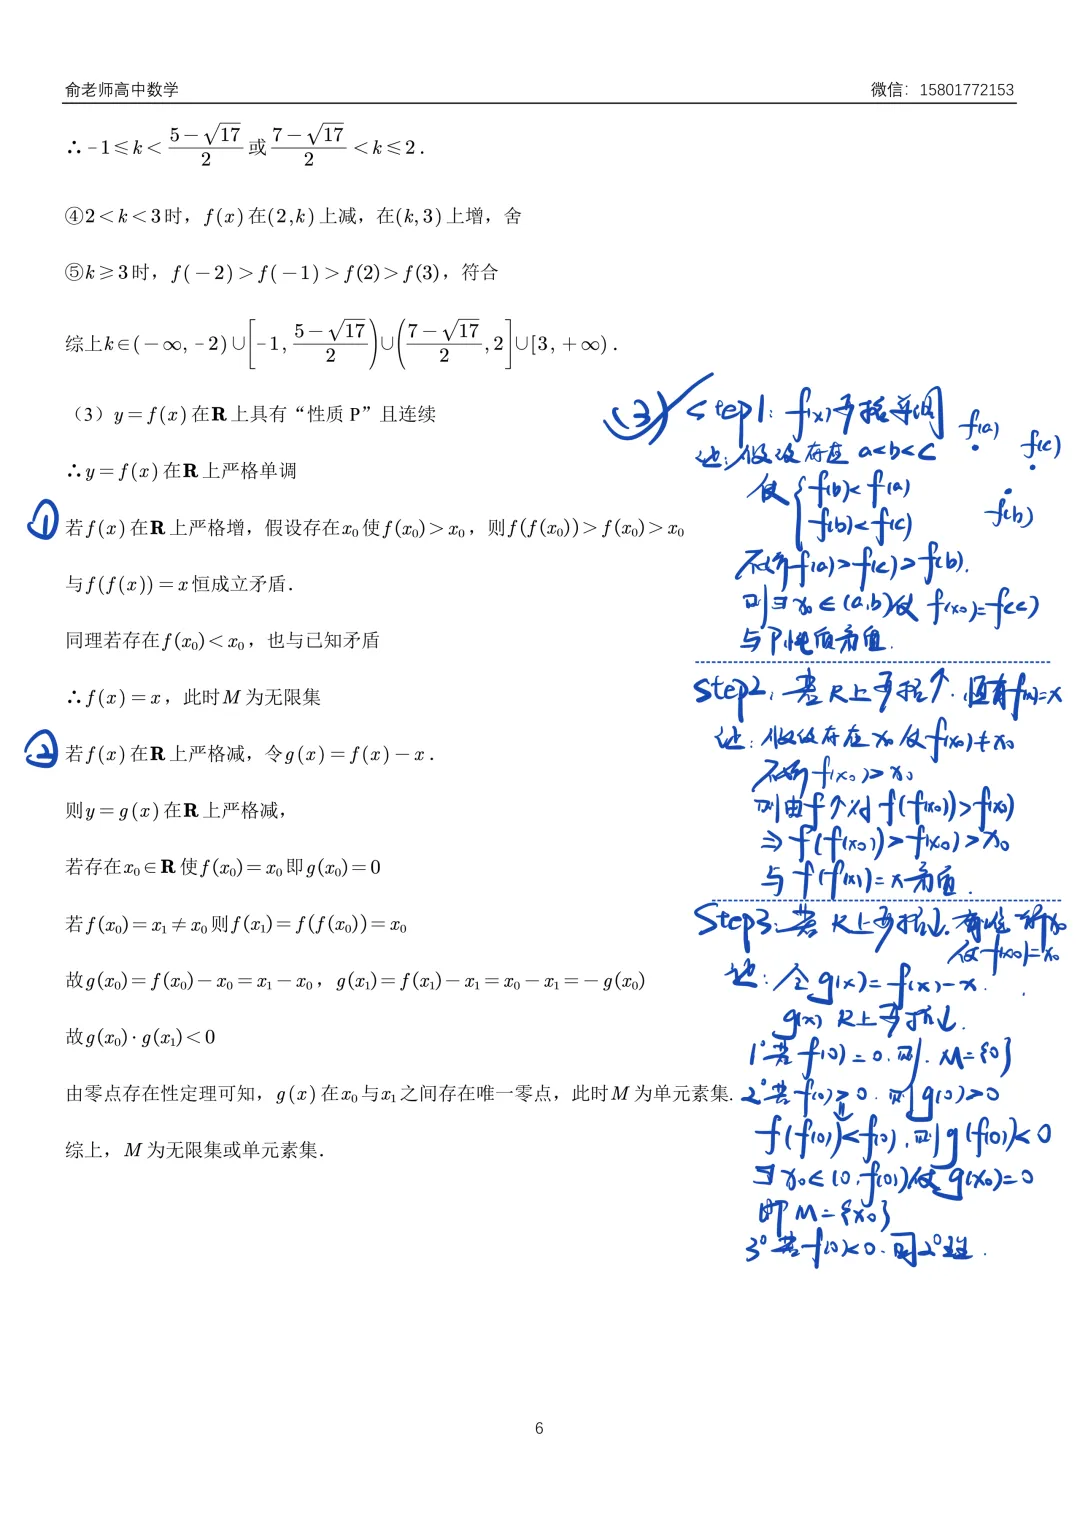 俞老师高中数学 微信：15801772153
∴ -1≤k<(5-√17)/2 或 (7-√17)/2<k≤2.
④2<k<3时，f(x)在(2,k)上减，在(k,3)上增，舍
⑤k≥3时，f(-2)>f(-1)>f(2)>f(3)，符合
综上k∈(-∞,-2)∪[-1,(5-√17)/2)∪((7-√17)/2,2]∪[3,+∞).
（3）y=f(x)在R上具有“性质 P”且连续
∴y=f(x)在R上严格单调
① 若f(x)在R上严格增，假设存在x₀使f(x₀)>x₀，则f(f(x₀))>f(x₀)>x₀
与f(f(x))=x恒成立矛盾.
同理若存在f(x₀)<x₀，也与已知矛盾
∴f(x)=x，此时M为无限集
② 若f(x)在R上严格减，令g(x)=f(x)-x.
则y=g(x)在R上严格减，
若存在x₀∈R使f(x₀)=x₀即g(x₀)=0
若f(x₀)=x₁≠x₀则f(x₁)=f(f(x₀))=x₀
故g(x₀)=f(x₀)-x₀=x₁-x₀，g(x₁)=f(x₁)-x₁=x₀-x₁=-g(x₀)
故g(x₀)·g(x₁)<0
由零点存在性定理可知，g(x)在x₀与x₁之间存在唯一零点，此时M为单元素集.
综上，M为无限集或单元素集.
(3) Step1: f(x)严格单调
证:假设存在 a<b<c
f(a)
f(c)
f(b)
使{f(b)<f(a)
f(b)<f(c)
不妨f(a)>f(c)>f(b).
则∃x₀∈(a,b)使 f(x₀)=f(c)
与P性质矛盾.
Step2: 若R上严格↑.恒有f(x)=x
证:假设存在x₀使f(x₀)≠x₀
不妨f(x₀)>x₀
则由f↑对f(f(x₀))>f(x₀)
⇒f(f(x₀))>f(x₀)>x₀
与f(f(x))=x矛盾.
Step3:若R上严格↓.有唯一x₀
使f(x₀)=x₀
证:令g(x)=f(x)-x.
g(x) R上严格↓.
1°若f(0)=0.则.M={0}
2°若f(0)>0.则g(0)>0
⇓
f(f(0))<f(0).则g(f(0))<0
∃x₀∈(0,f(0))使g(x₀)=0
即M={x₀}
3°若f(0)<0.同2°理.
6